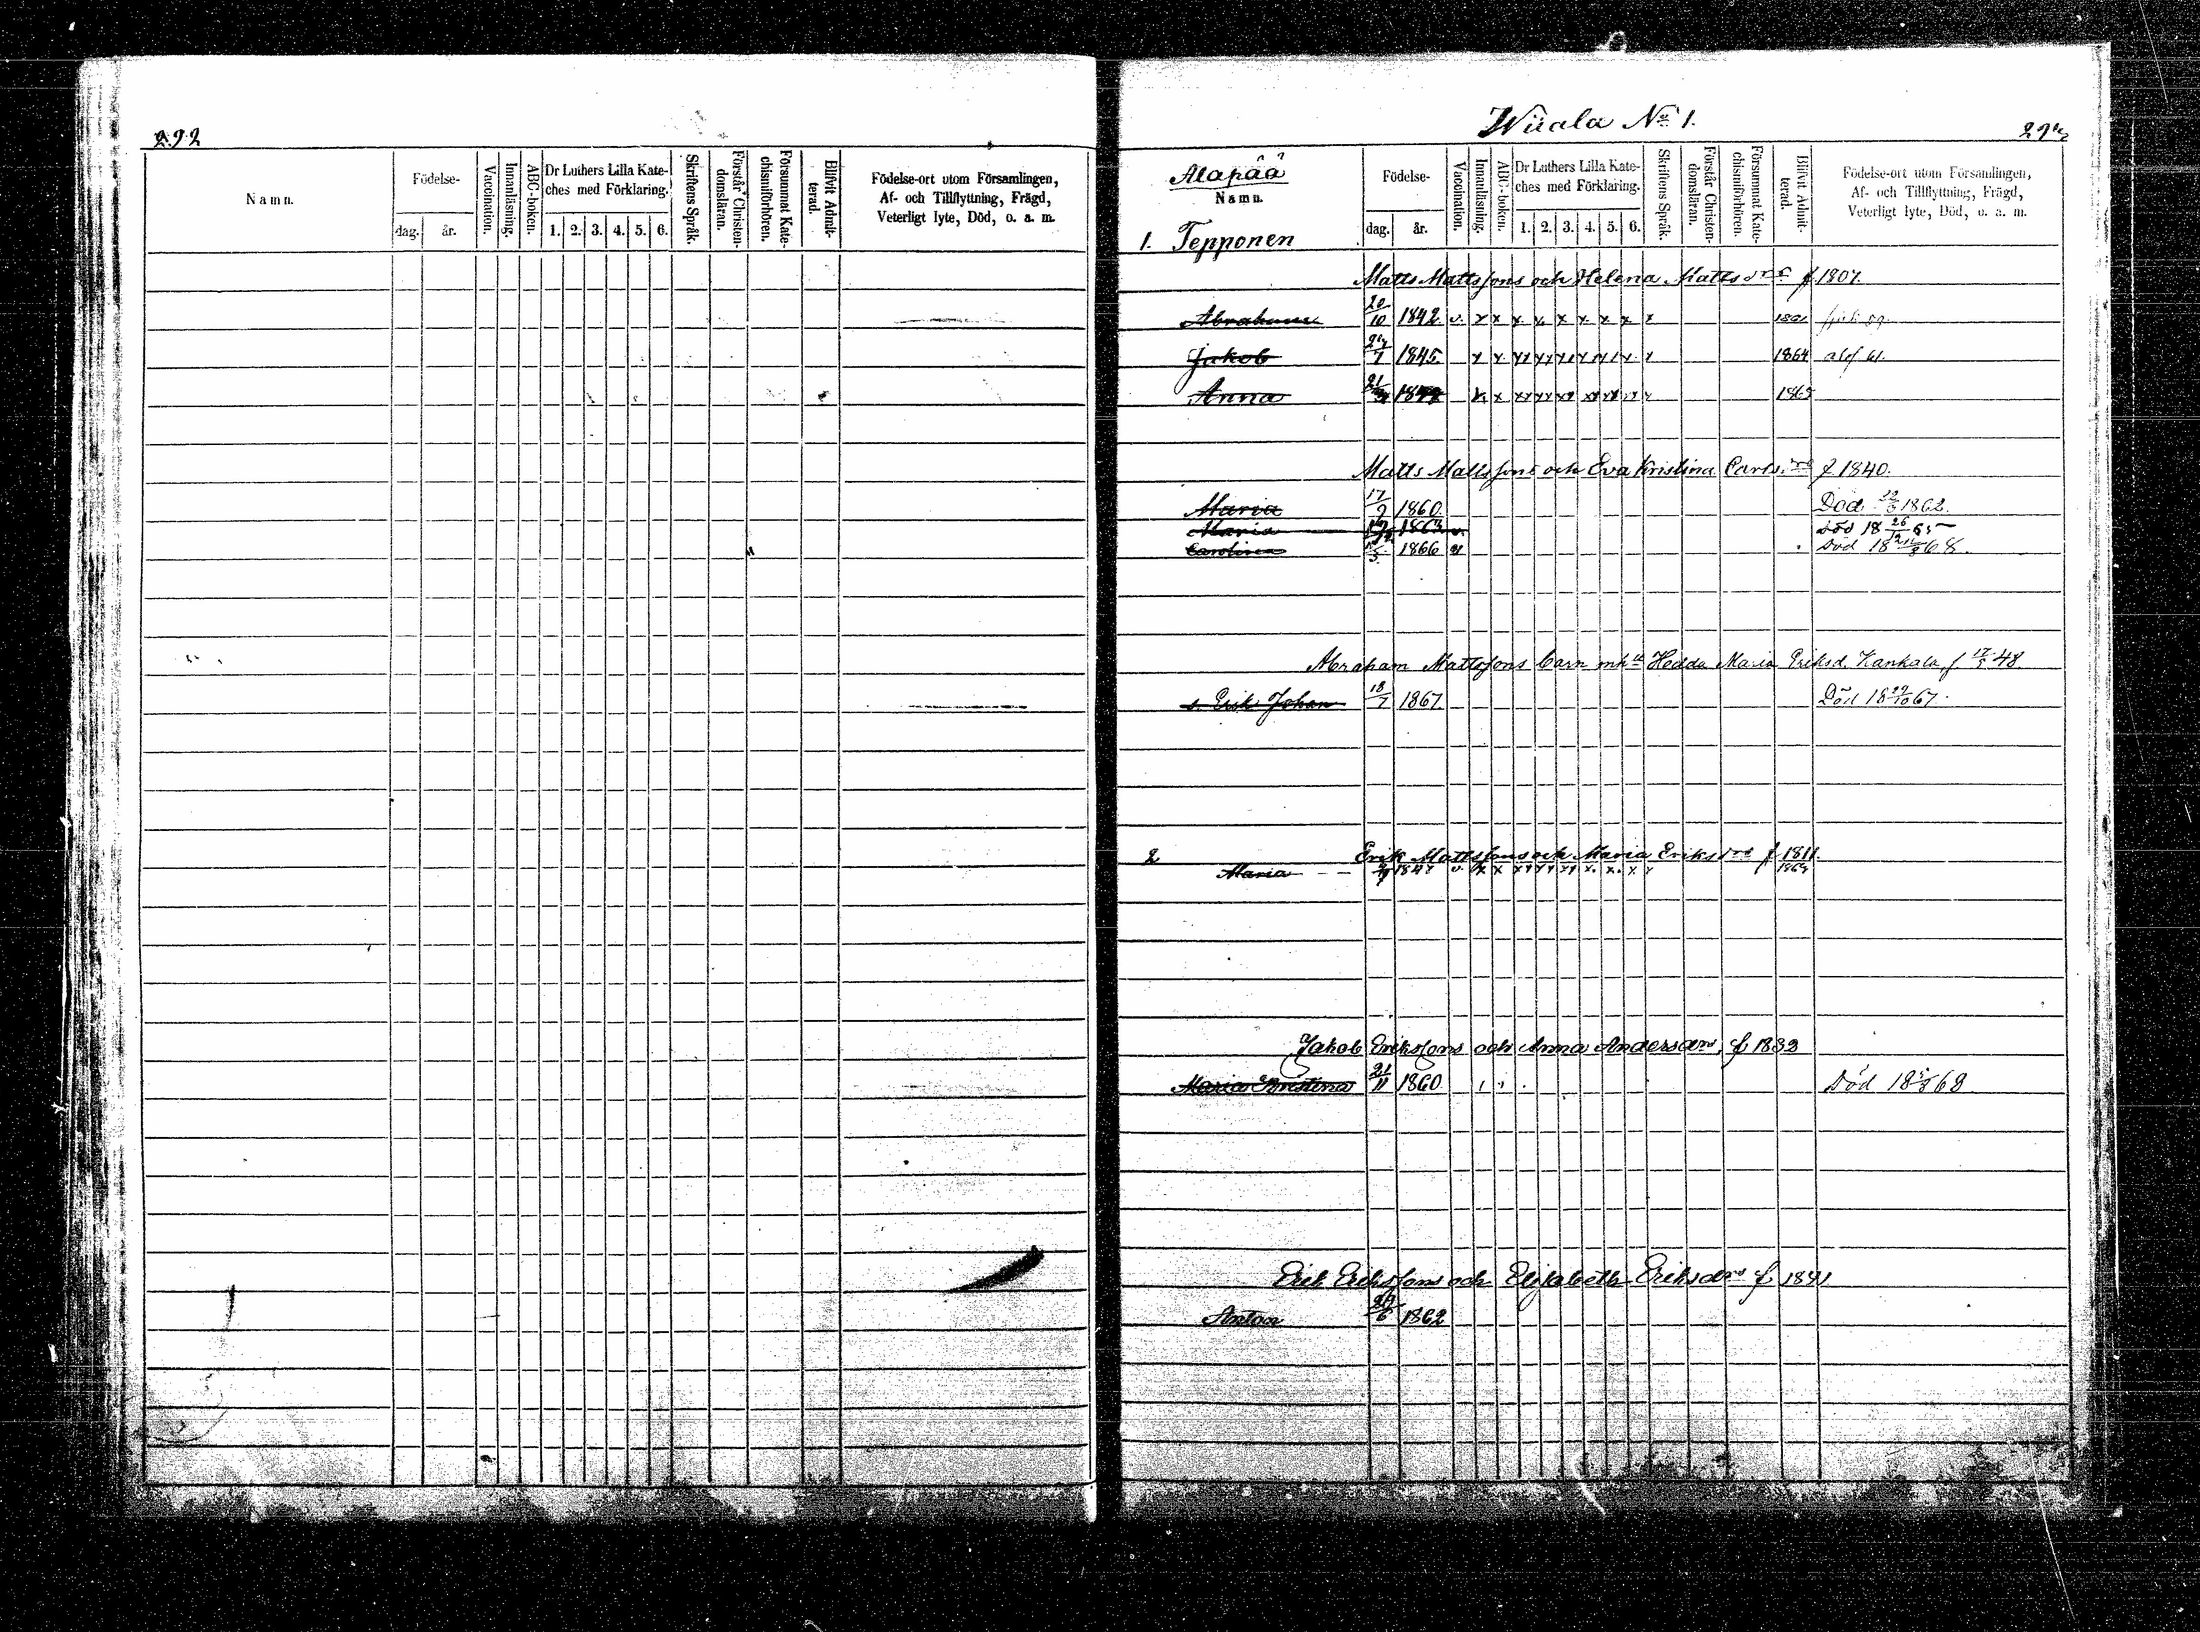 292
Namn.
Födelse-
dag. år.
Vaccination.
Innanläsning.
ABC-boken.
Dr Luthers Lilla Kate-
ches med Förklaring.
1. 2. 3. 4. 5. 6.
Skriftens Språk.
Förstår Christen-
domsläran.
Försummat Kate-
chismiförhören.
Blifvit Admit-
terad.
Födelse-ort utom Församlingen,
Af- och Tillflyttning, Frägd,
Veterligt lyte, Död, o. a. m.
Wiiala No 1.
Alapää
Namn.
1. Tepponen
Födelse-
dag. år.
Vaccination.
Innanläsning.
ABC-boken.
Dr Luthers Lilla Kate-
ches med Förklaring.
1. 2. 3. 4. 5. 6.
Skriftens Språk.
Förstår Christen-
domsläran.
Försummat Kate-
chismiförhören.
Blifvit Admit-
terad.
Födelse-ort utom Församlingen,
Af- och Tillflyttning, Frägd,
Veterligt lyte, Död, o. a. m.
Matts Mattssons och Helena Mattsdrs f. 1807.
Abraham 20/10 1842 v. x x x x x x x x x
Jakob 1845 x x xx xx xx xx xx x x 1864
Anna 21 x x xx xx xx xx xx 1865
Matts Mattssons och Eva Kristina Carls drs f 1840.
Maria 17/9 1860 Död 1862.
Maria 1863 v. död 18 26 65
Carolina 1866 v död 18 68.
Abraham Mattssons barn m hu Hedda Maria Eriksd. Kankala f 48
s. Erik Johan 18/7 1867 Död 18 29/10 67.
2 Erik Mattssons och Maria Eriksdrs f 1811.
Maria 1847 v. x x xx xx xx x. x. x x
Jakob Erikssons och Anna Andersdrs, f 1833
Maria Kristina 21/11 1860 Död 18 68
Erik Erikssons och Elisabeth Eriksdrs f 1841
Anton 1862